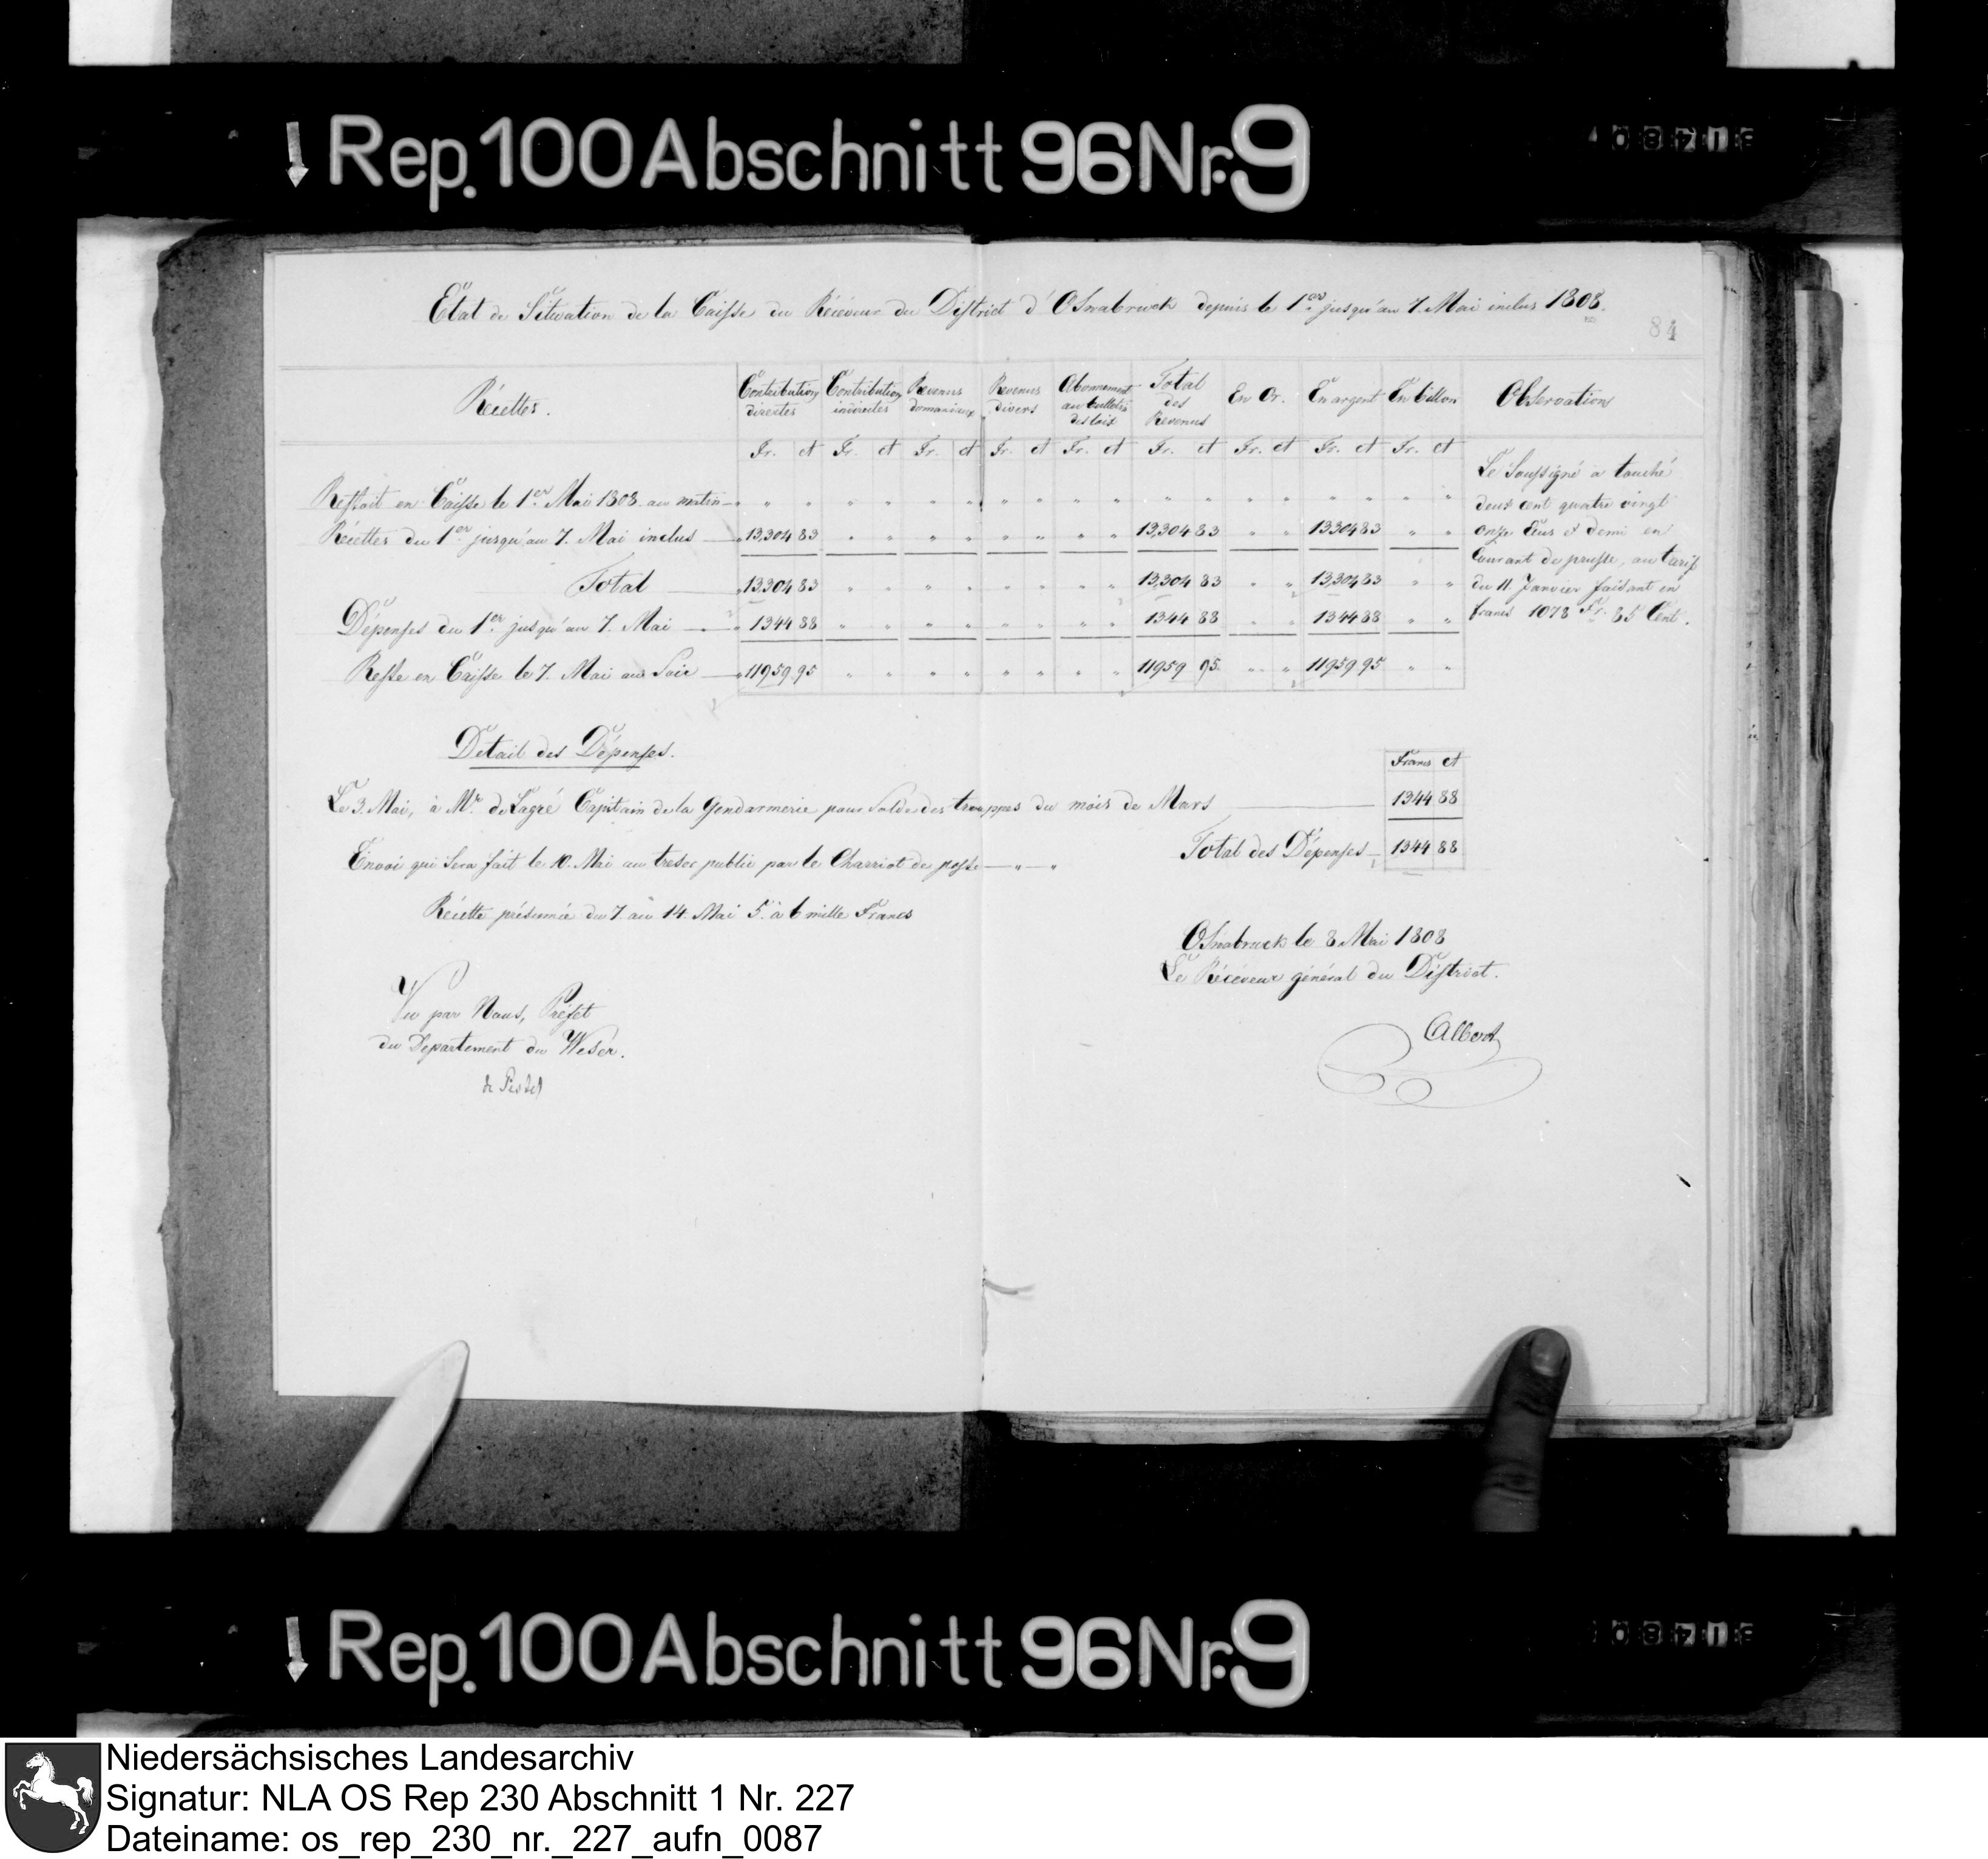 Rep. 100 Abschnitt 96 Nr. 9
Etat de Situation de la Caisse du Réceveur du District d'Osnabruck depuis le 1er jusqu'au 7. Mai inclus 1808.
84
Récettes. Contributions directes Contributions indirectes Revenus domaniaux Revenus divers Abonnement au bulletin des loix Total des Revenus En Or. En argent En billon Observations
Fr. ct Fr. ct Fr. ct Fr. ct Fr. ct Fr. ct Fr. ct Fr. ct Fr. ct
Restait en Caisse le 1er Mai 1808 au matin " " " " " " " " " " " " " " " " " "
Récettes du 1er jusqu'au 7. Mai inclus 13,304 83 " " " " " " " " 13,304 83 " " 13304 83 " "
Total 13,304 83 " " " " " " " " 13,304 83 " " 13,304 83 " "
Dépenses du 1er jusqu'au 7. Mai 1344 88 " " " " " " " " 1344 88 " " 1344 88 " "
Reste en Caisse le 7. Mai au Soir 11959 95 " " " " " " " " 11959 95 " " 11959 95 " "
Le Soussigné a touché
deux cent quatre vingt
onze Ecus & demi en
Courant de prusse, au tarif
du 11 Janvier faisant en
francs 1078 Fr. 85 Cent.
Detail des Dépenses.
Francs ct
Le 3. Mai, à Mr. de Lagré Capitain de la Gendarmerie pour Solde des trouppes du mois de Mars 1344 88
Total des Dépenses 1344 88
Envoi qui Sera fait le 10. Mai au tresor public par le Charriot de poste " "
Récette présumée du 7. au 14. Mai 5. à 6 mille Francs
Osnabruck le 8 Mai 1808
Le Réceveur général du District.
Albert
Vu par Nous, Préfet
du Departement du Weser.
de Pestel
Rep. 100 Abschnitt 96 Nr. 9
Niedersächsisches Landesarchiv
Signatur: NLA OS Rep 230 Abschnitt 1 Nr. 227
Dateiname: os_rep_230_nr._227_aufn_0087